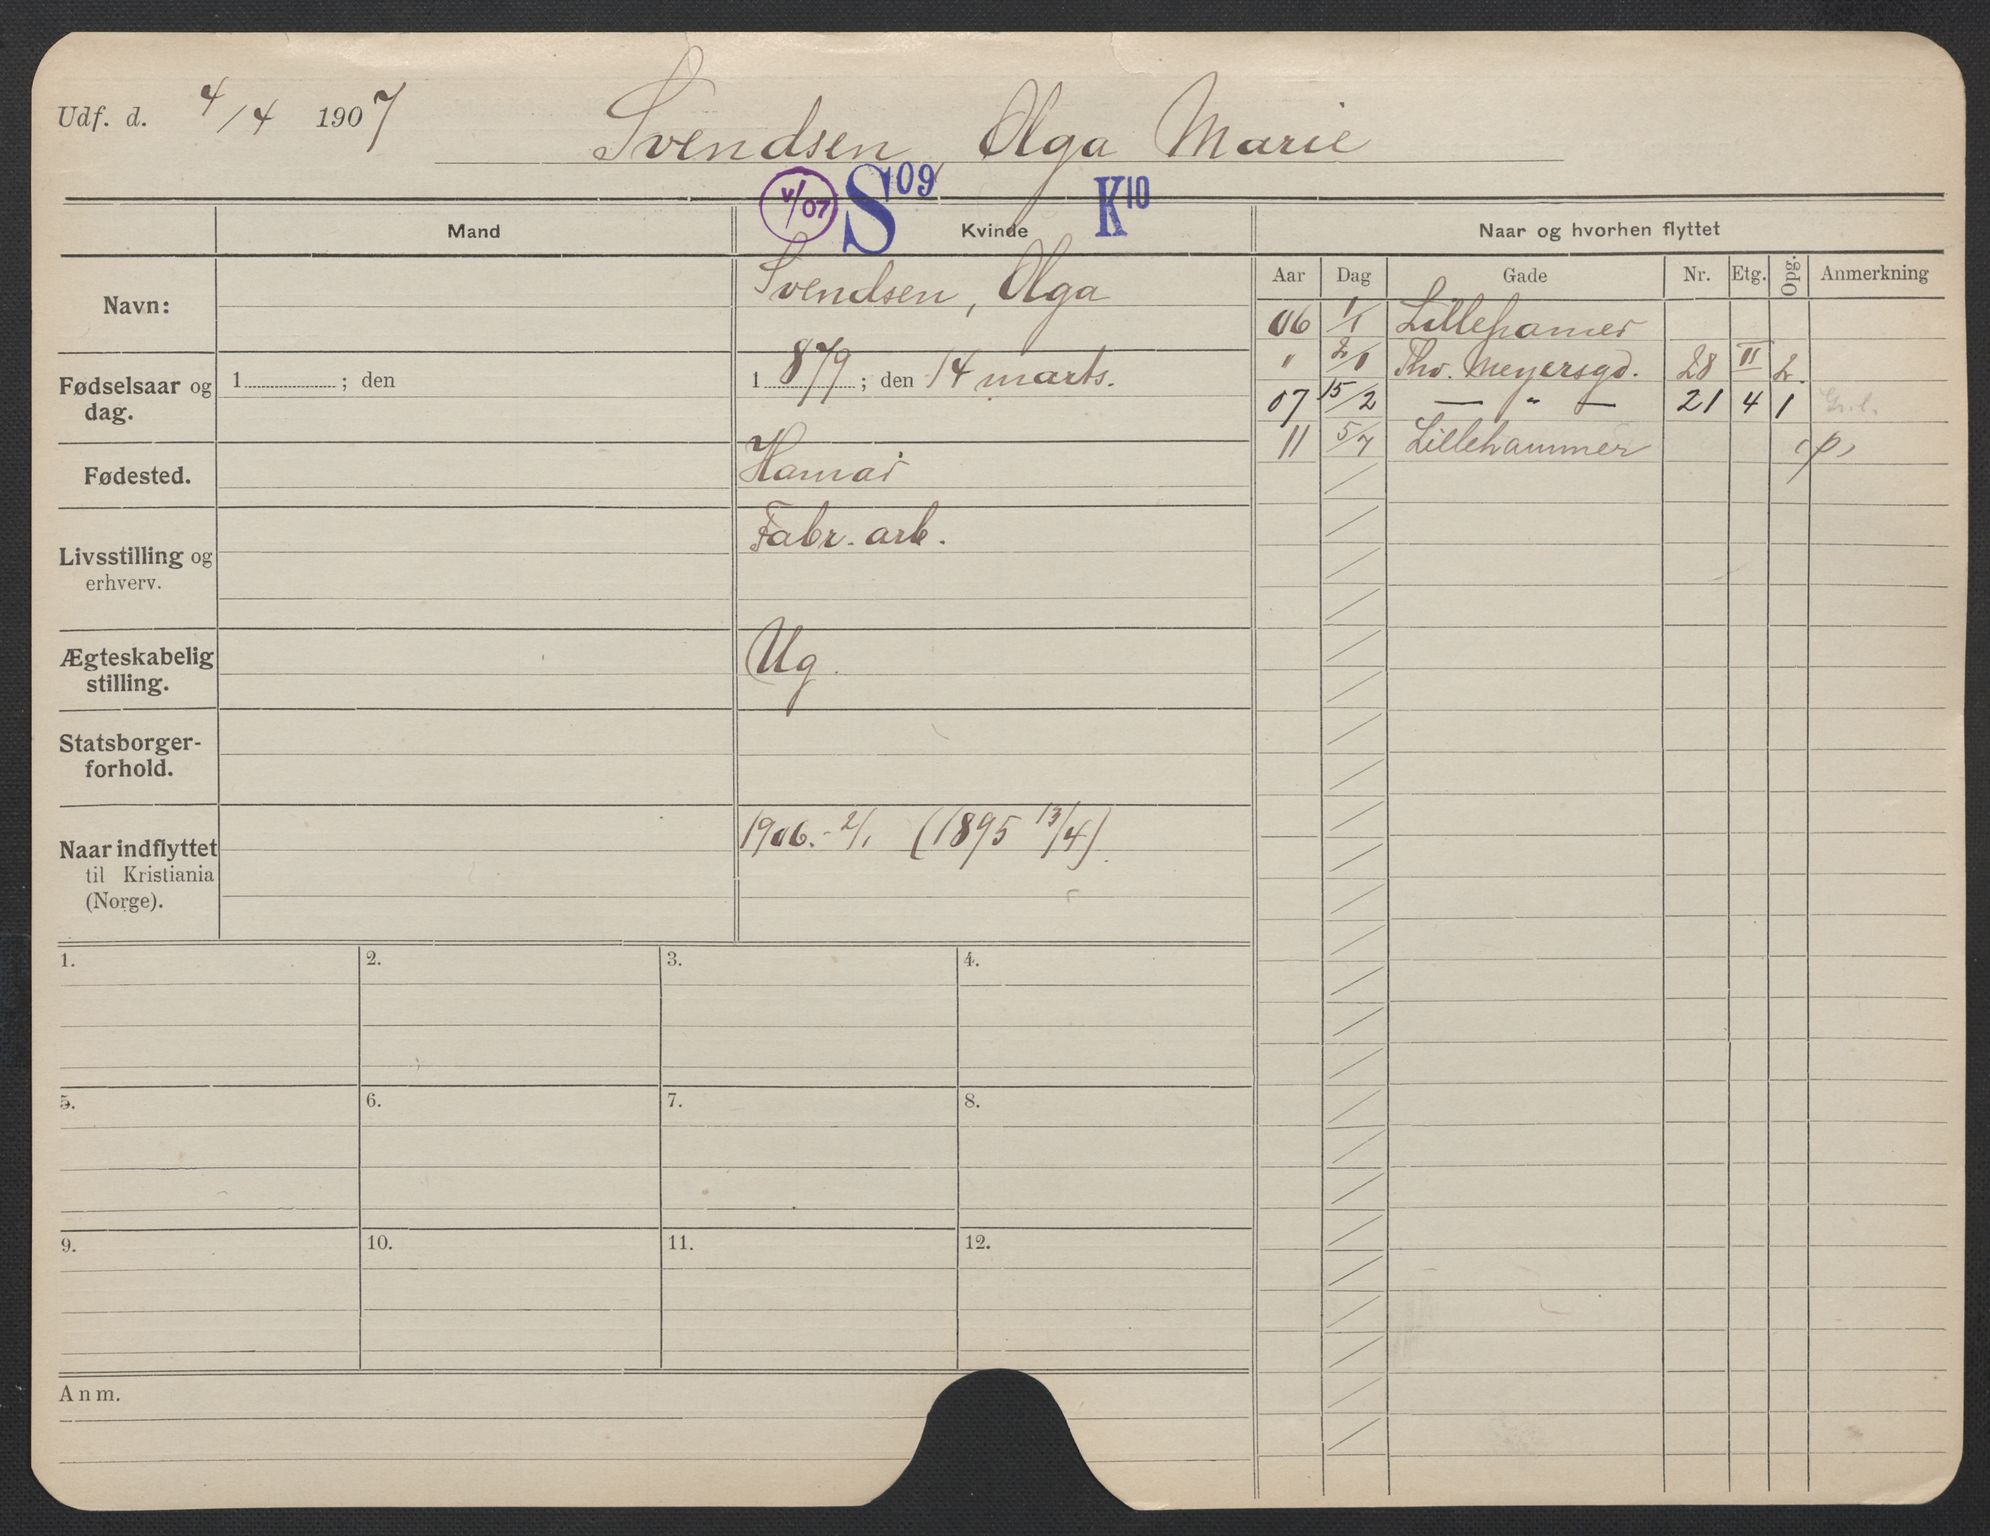 Udf. d. 4/4 1907 Svendsen, Olga Marie
V/07 S09 K10
Mand Kvinde Naar og hvorhen flyttet
Aar Dag Gade Nr. Etg. Opg. Anmerkning
Navn: Svendsen, Olga
06 1/1 Lillehamer
" 2/1 Thv. Meyersgd. 28 II 2.
07 15/2 — " — 21 4 1
11 5/7 Lillehammer
Fødselsaar og
dag. 1 ; den 1879 ; den 14 marts.
Fødested. Hamar
Livsstilling og
erhverv. Fabr. arb.
Ægteskabelig
stilling. Ug.
Statsborger-
forhold.
Naar indflyttet
til Kristiania
(Norge). 1906.-2/1 (1895 13/4)
1. 2. 3. 4.
5. 6. 7. 8.
9. 10. 11. 12.
Anm.